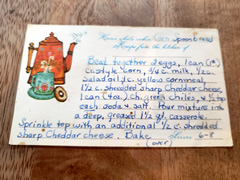 Here's what's cookin' Corn Spoon bread
Recipe from the kitchen of
Beat together 2 eggs, 1 can (1#)
cr. style corn, 3/4 c. milk, 1/2 c.
salad oil, c. yellow cornmeal,
1 1/2 c. shredded sharp Cheddar cheese,
1 can (4 oz.) ch. green chiles, & 1/2 tsp.
each soda & salt. Pour mixture into
a deep, greased 1 1/2 qt. casserole.
Sprinkle top with an additional 1/2 c. shredded
sharp Cheddar cheese. Bake Serves 6-8
(over)